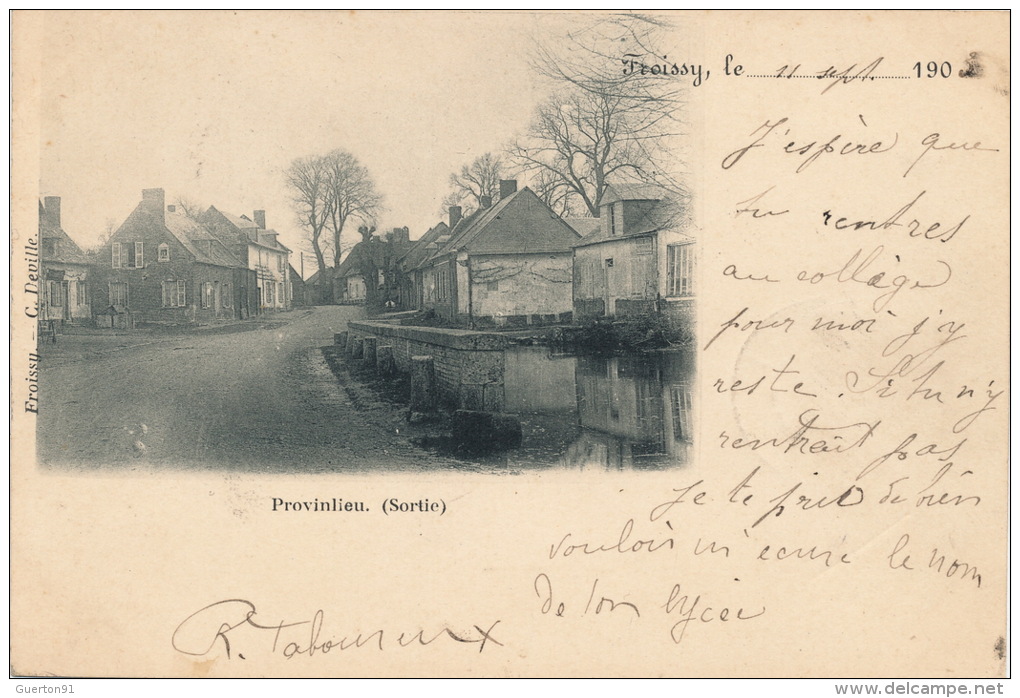 Froissy, le 11 sept. 190
J'espère que
tu rentres
au collège
pour moi j'y
reste. Si tu n'y
rentrait pas
Je te prie de bien
vouloir m'ecrire le nom
de ton lycée
R. Taboureux
Provinlieu. (Sortie)
Froissy. — C. Deville.
Guerton91
http://www.delcampe.net